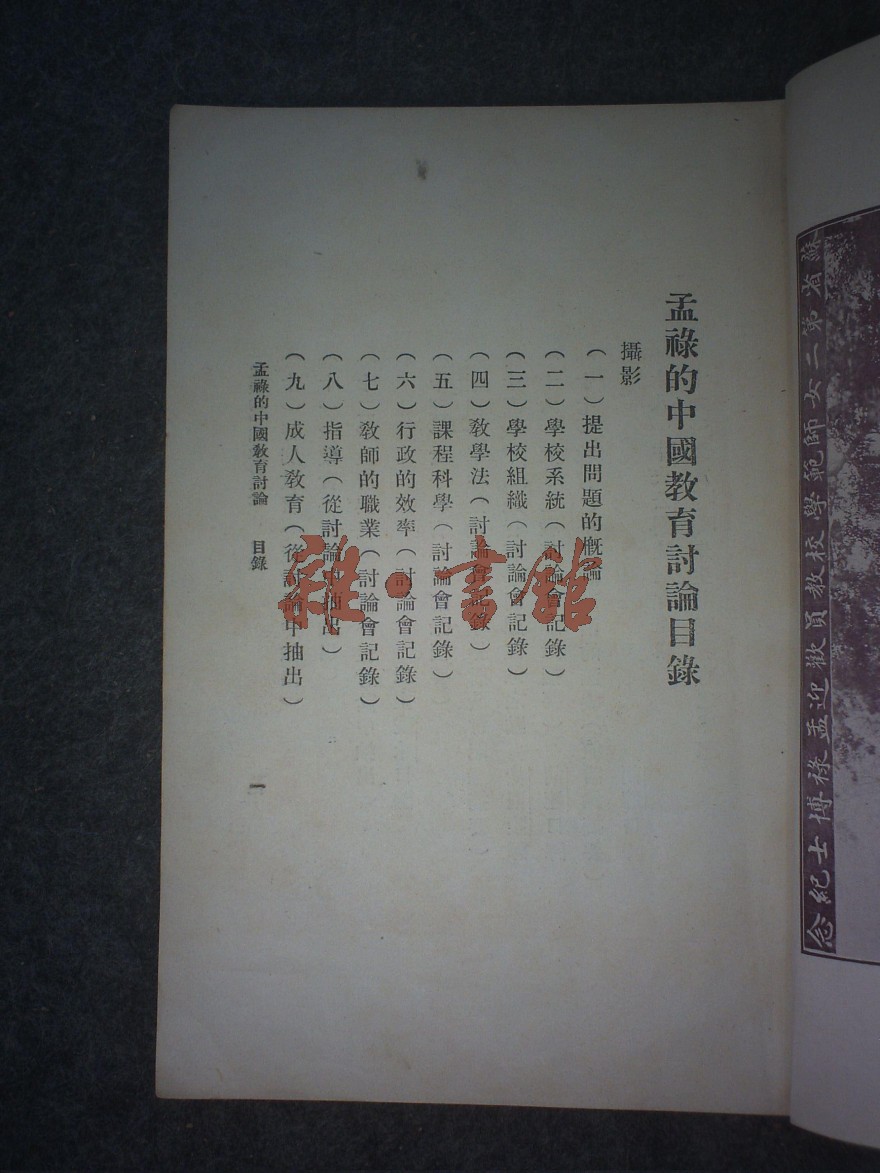 孟祿的中國教育討論目錄
攝影
(一)提出問題的概論
(二)學校系統(討論會記錄)
(三)學校組織(討論會記錄)
(四)教學法(討論會記錄)
(五)課程科學(討論會記錄)
(六)行政的效率(討論會記錄)
(七)教師的職業(討論會記錄)
(八)指導(從討論中抽出)
(九)成人教育(從討論中抽出)
孟祿的中國教育討論 目錄
一
蘇省第二女師範學校教員歡迎孟祿博士紀念
雜·書館